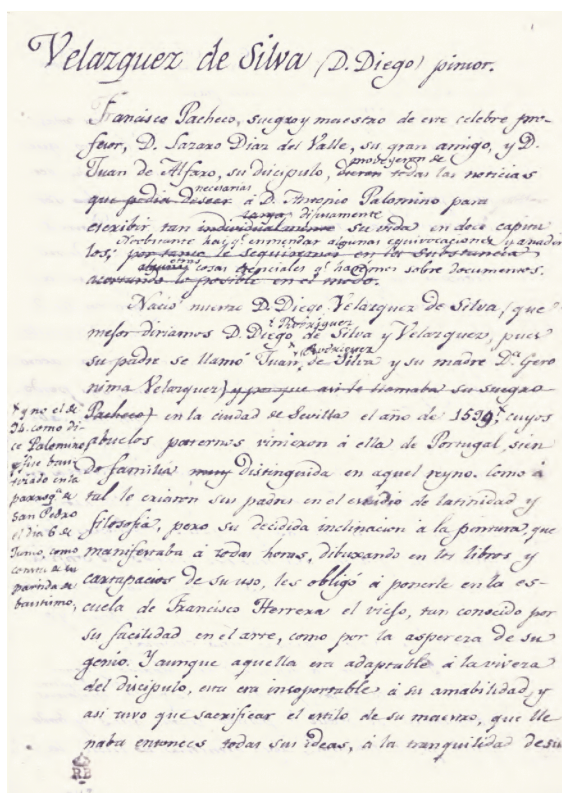 Velazquez de Silva (D. Diego) pintor.
Francisco Pacheco, suegro y maestro de este celebre pro-
fesor, D. Lazaro Diaz del Valle, su gran amigo, y D.
proveyeron de
Juan de Alfaro, su discipulo, dieron todas las noticias
necesarias
que podia desear á D. Antonio Palomino para
larga difusamente
escribir tan individualmente su vida en doce capitu
No obstante hay q.e enmendar algunas equivocaciones y añadir
los; por tanto le seguiremos en la substancia
algunas otras cosas esenciales q.e hacemos sobre documentos.
acortando lo posible en el modo.
Nació nuestro D. Diego Velazquez de Silva, (que
Rodriguez
mejor diriamos D. Diego de Silva y Velazquez, pues
Rodriguez
su padre se llamó Juan, de Silva y su madre D.a Gero
nima Velazquez) y porque asi le llamaba su suegro
Pacheco) en la ciudad de Sevilla el año de 1599, cuyos
abuelos paternos vinieron á ella de Portugal, sien
do familia muy distinguida en aquel reyno. Como á
tal le criaron sus padres en el estudio de latinidad y
filosofía, pero su decidida inclinacion á la pintura, que
manifestaba á todas horas, dibuxando en los libros y
cartapacios de su uso, les obligó á ponerle en la es-
cuela de Francisco Herrera el viejo, tan conocido por
su facilidad en el arte, como por la aspereza de su
genio. Y aunque aquella era adaptable á la viveza
del discipulo, esta era insoportable á su amabilidad, y
asi tuvo que sacrificar el estilo de su maestro, que lle
naba entonces todas sus ideas, á la tranquilidad de su
y no el de
94. como di-
ce Palomino
y fue bau-
tizado en la
parroq.a de
San Pedro
el dia 6 de
Junio, como
consta de su
partida de
bautismo,
RB